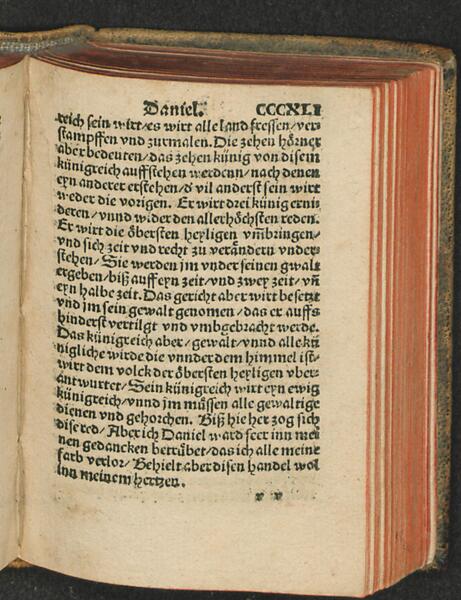 Daniel. CCCXLI
reich sein wirt/es wirt alle land fressen/ver⸗
stampffen vnd zurmalen. Die zehen hörner
aber bedeuten/das zehen künig von disem
künigreich auffstehen werdenn/nach denen
eyn anderer erstehen/d̕ vil anderst sein wirt
weder die vorigen. Er wirt drei künig erni⸗
deren/vnnd wider den allerhöchsten reden.
Er wirt die öbersten heyligen vm̃bringen⸗
vnd sich zeit vnd recht zu verändern vnder⸗
stehen/Sie werden jm vnder seinen gwalt
ergeben/biß auff eyn zeit/vnd zwey zeit/vn̄
eyn halbe zeit. Das gericht aber wirt besetzt
vnd jm sein gewalt genomen/das er auffs
hinderst vertilgt vnd vmbgebracht werde.
Das künigreich aber/gewalt/vnnd alle kü
nigliche wirde die vnnder dem himmel ist⸗
wirt dem volck der öbersten heyligen vber⸗
antwurtet/Sein künigreich wirt eyn ewig
künigreich/vnnd jm müssen alle gewaltige
dienen vnd gehorchen. Biß hie her zog sich
dise red/Aber ich Daniel ward seer inn mei
nen gedancken betrübet/das ich alle meine
farb verlor/Behielt aber disen handel wol
inn meinem hertzen.
x x